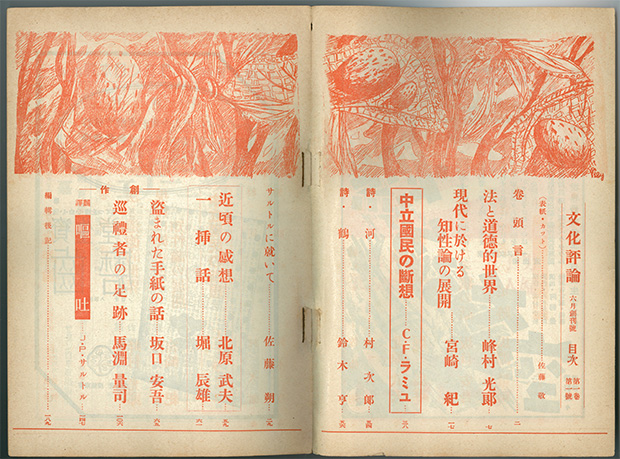 文化評論 六月創刊號 目次 第一卷 第一號
(表紙・カット)……佐藤 敬
卷頭言……二
法と道德的世界……峰村光郎……七
現代に於ける知性論の展開……宮崎 紀……一七
中立國民の斷想……C・F・ラミュ
詩・河……村 次郎
詩・鶴……鈴木 亨
サルトルに就いて……佐藤 朔
近頃の感想……北原武夫
一插話……堀 辰雄
創作
盗まれた手紙の話……坂口安吾
巡禮者の足跡……馬淵量司
飜譯 嘔吐……J・P・サルトル
編輯後記